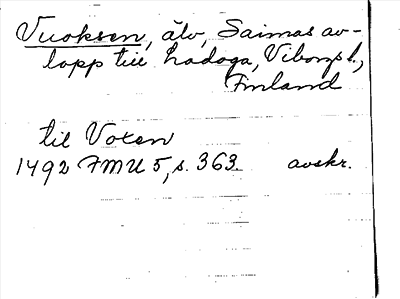 Vuoksen, älv, Saimas av-
lopp till Ladoga, Viborgs l.,
Finland
til Voxen
1492 FMU 5, s. 363. avskr.